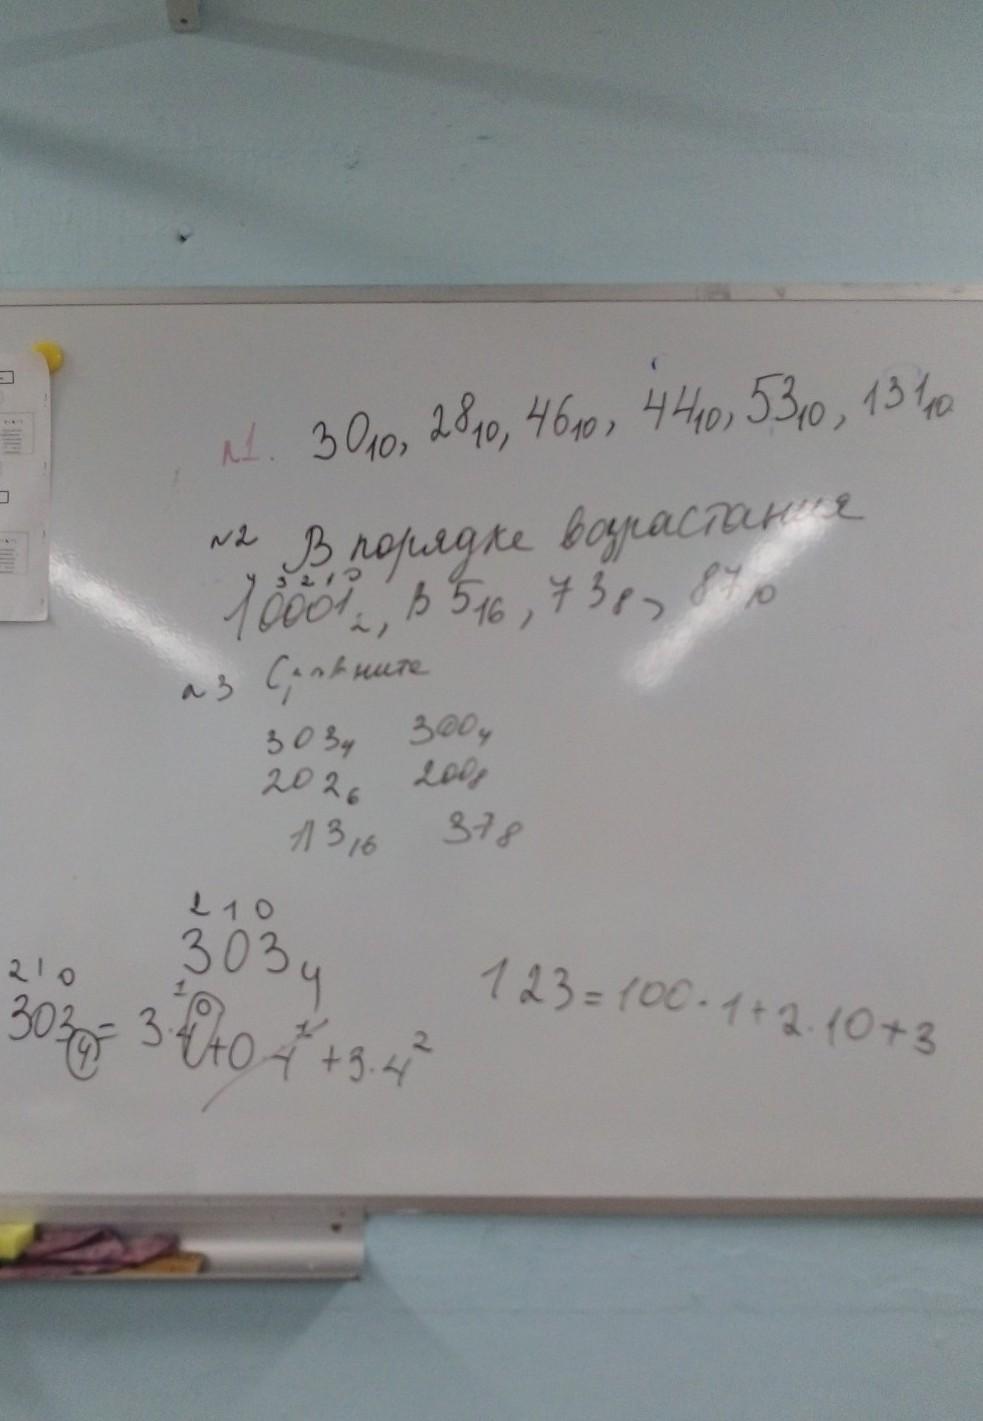 №1. 30₁₀, 28₁₀, 46₁₀, 44₁₀, 53₁₀, 131₁₀
№2 В порядке возрастания
4 3 2 1 0
10001₂, B5₁₆, 73₈, 87₁₀
№3 Сравните
303₄ 300₄
202₆ 200₈
13₁₆ 37₈
2 1 0
303₄
2 1 0
303₄ = 3·4⁰+0·4¹+3·4²
1
123=100·1+2·10+3